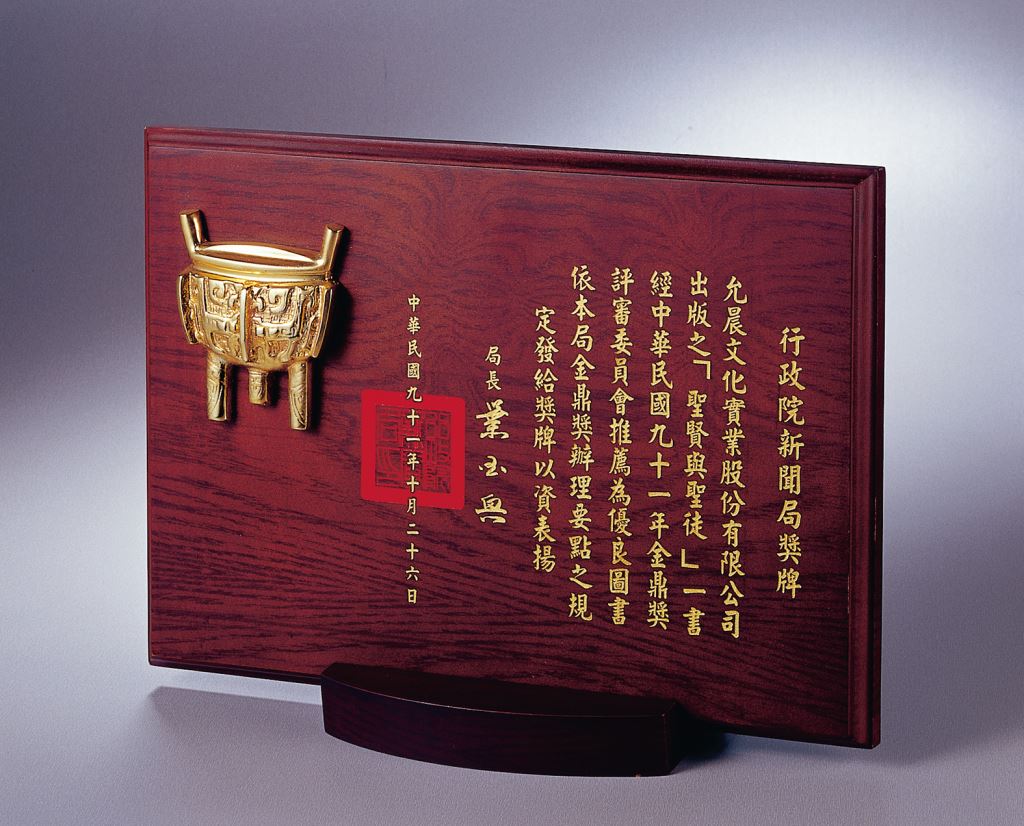 行政院新聞局獎牌
允晨文化實業股份有限公司
出版之「聖賢與聖徒」一書
經中華民國九十一年金鼎獎
評審委員會推薦為優良圖書
依本局金鼎獎辦理要點之規
定發給獎牌以資表揚
局長 葉國興
中華民國九十一年十月二十六日